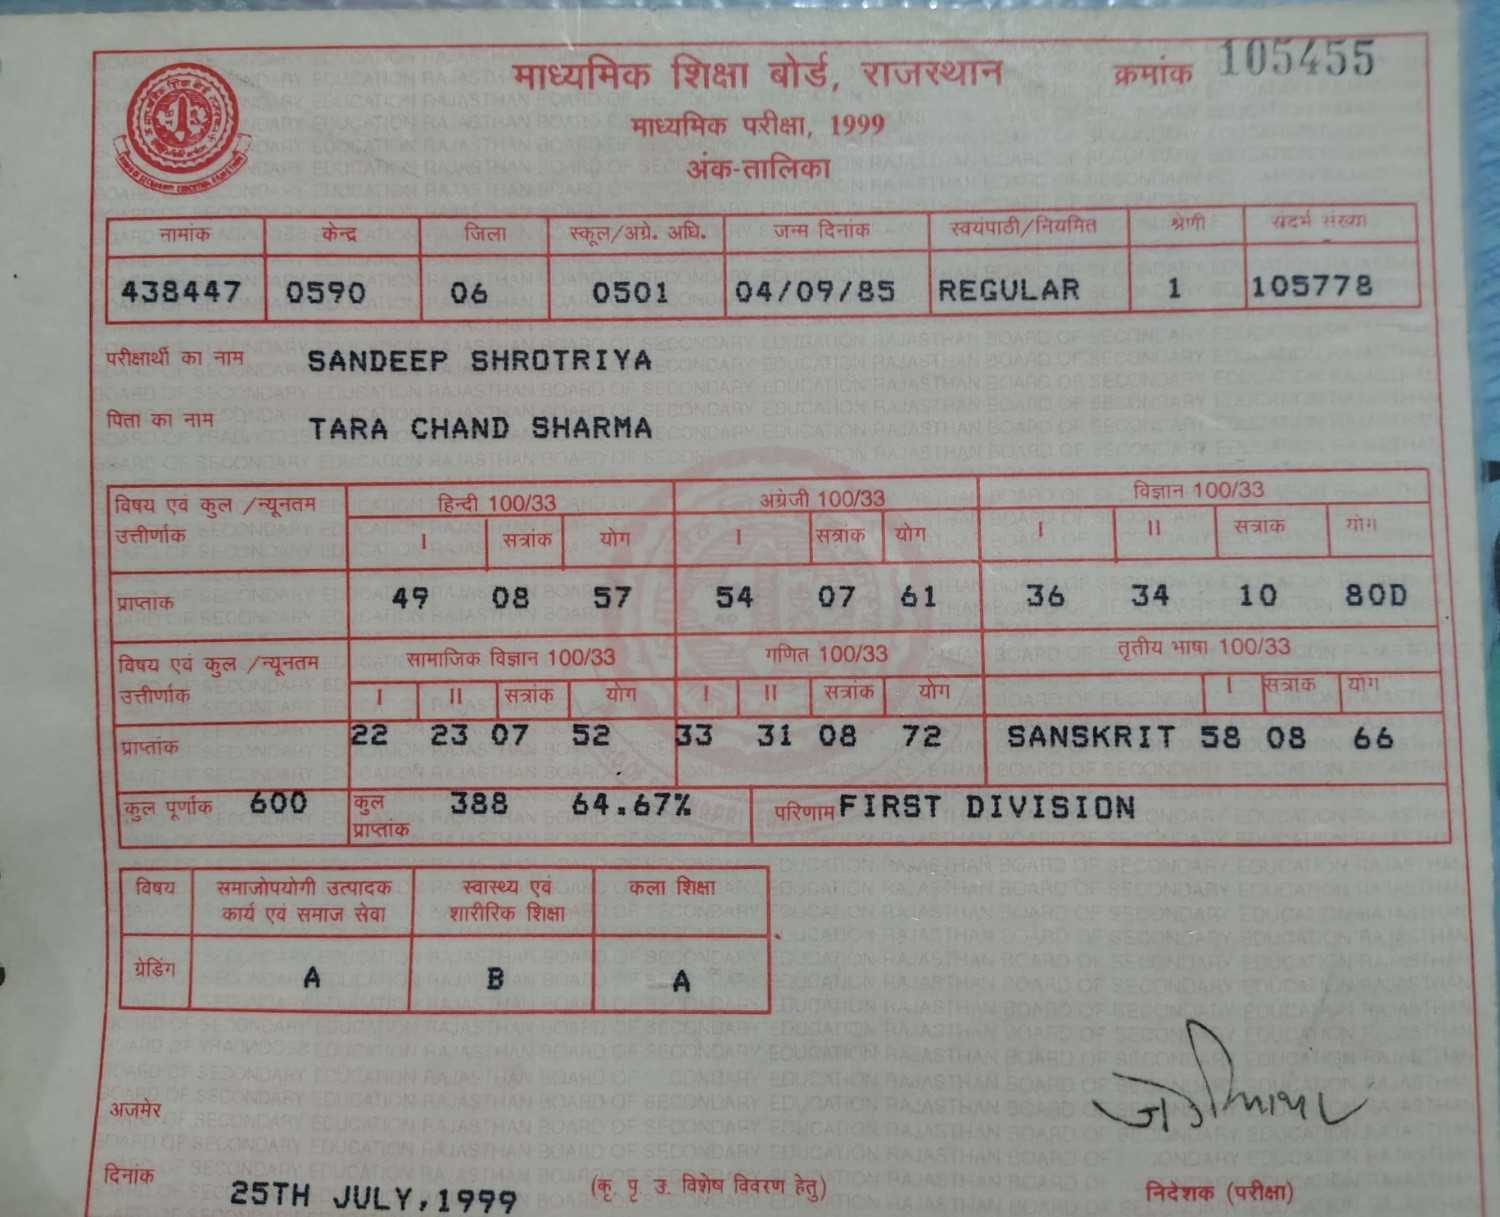 माध्यमिक शिक्षा बोर्ड, राजस्थान क्रमांक 105455
माध्यमिक परीक्षा, 1999
अंक-तालिका
नामांक केन्द्र जिला स्कूल/अग्रे. अधि. जन्म दिनांक स्वयंपाठी/नियमित श्रेणी संदर्भ संख्या
438447 0590 06 0501 04/09/85 REGULAR 1 105778
परीक्षार्थी का नाम SANDEEP SHROTRIYA
पिता का नाम TARA CHAND SHARMA
विषय एवं कुल /न्यूनतम हिन्दी 100/33 अंग्रेजी 100/33 विज्ञान 100/33
उत्तीर्णांक I सत्रांक योग I सत्रांक योग I II सत्रांक योग
प्राप्तांक 49 08 57 54 07 61 36 34 10 80D
विषय एवं कुल /न्यूनतम सामाजिक विज्ञान 100/33 गणित 100/33 तृतीय भाषा 100/33
उत्तीर्णांक I II सत्रांक योग I II सत्रांक योग I सत्रांक योग
प्राप्तांक 22 23 07 52 33 31 08 72 SANSKRIT 58 08 66
कुल पूर्णांक 600 कुल 388 64.67% परिणाम FIRST DIVISION
प्राप्तांक
विषय समाजोपयोगी उत्पादक स्वास्थ्य एवं कला शिक्षा
कार्य एवं समाज सेवा शारीरिक शिक्षा
ग्रेडिंग A B A
अजमेर
दिनांक 25TH JULY,1999 (कृ. पृ. उ. विशेष विवरण हेतु) निदेशक (परीक्षा)